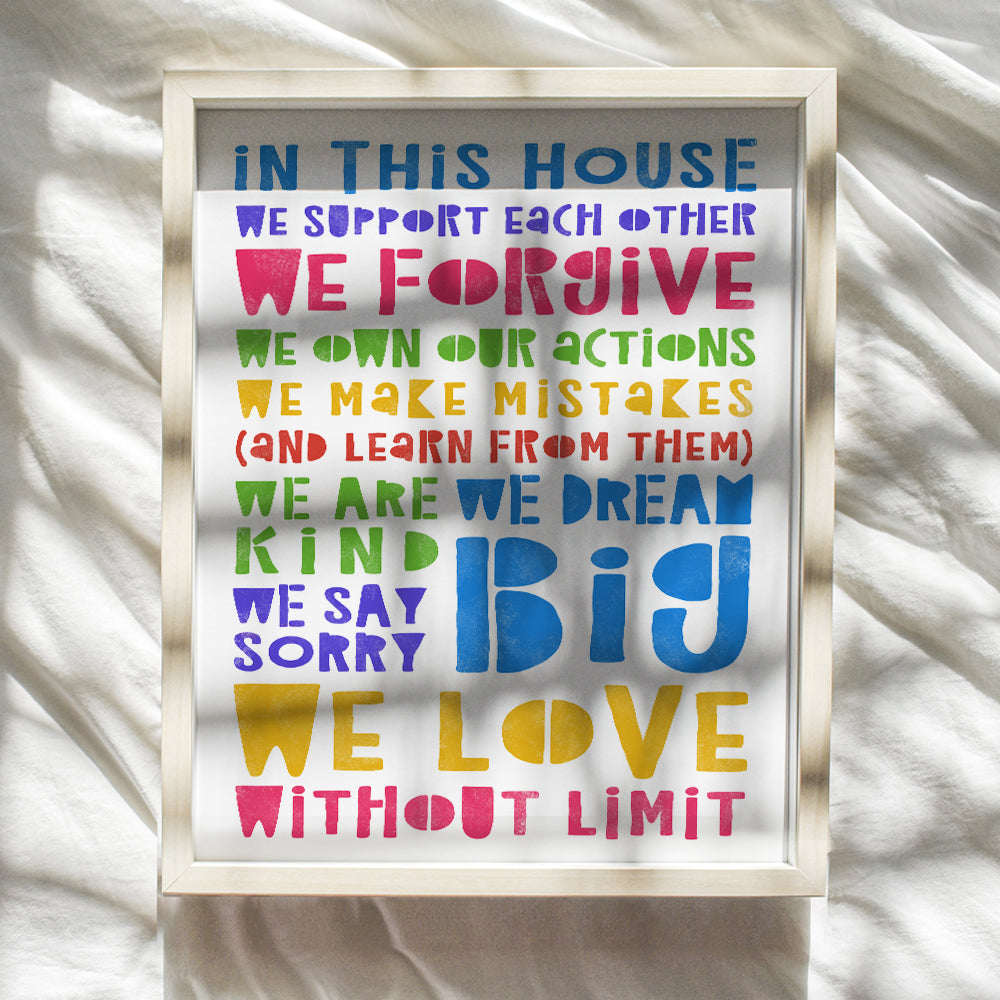 iN THiS HOUSE
WE SUPPORT EaCH OTHER
WE FORGiVE
WE OWN OUR aCTiONS
WE MaKE MiSTaKES
(aND LEaRN FROM THEM)
WE ARE
KiND
WE SAY
SORRY
WE DREAM
BiG
WE LOVE
WiTHOUT LiMiT